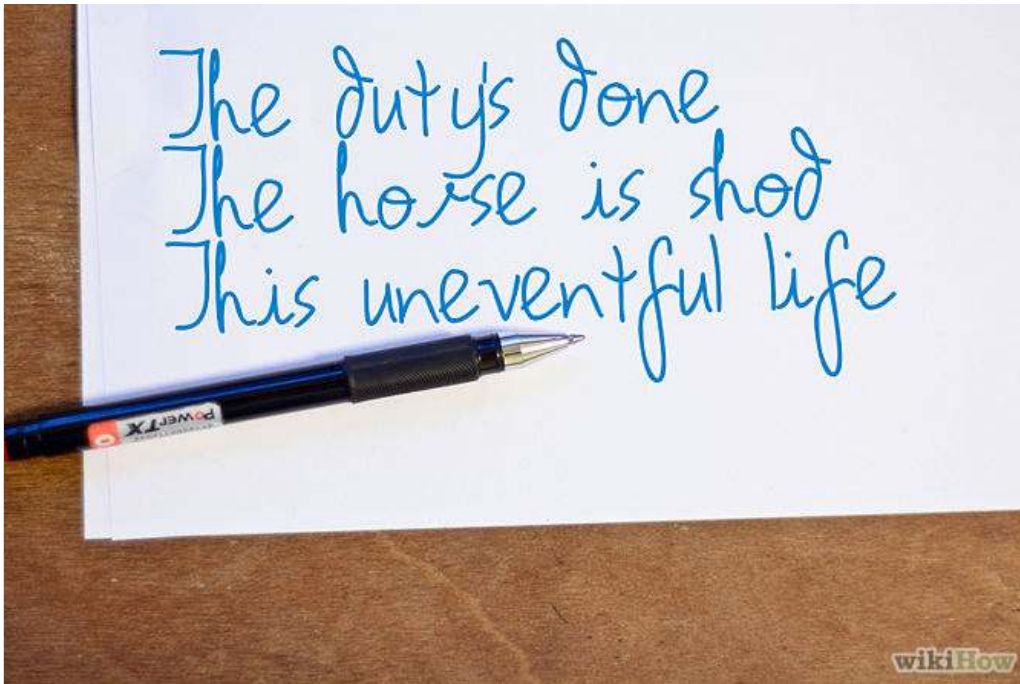 The duty's done
The horse is shod
This uneventful life
POWERTX
wikiHow